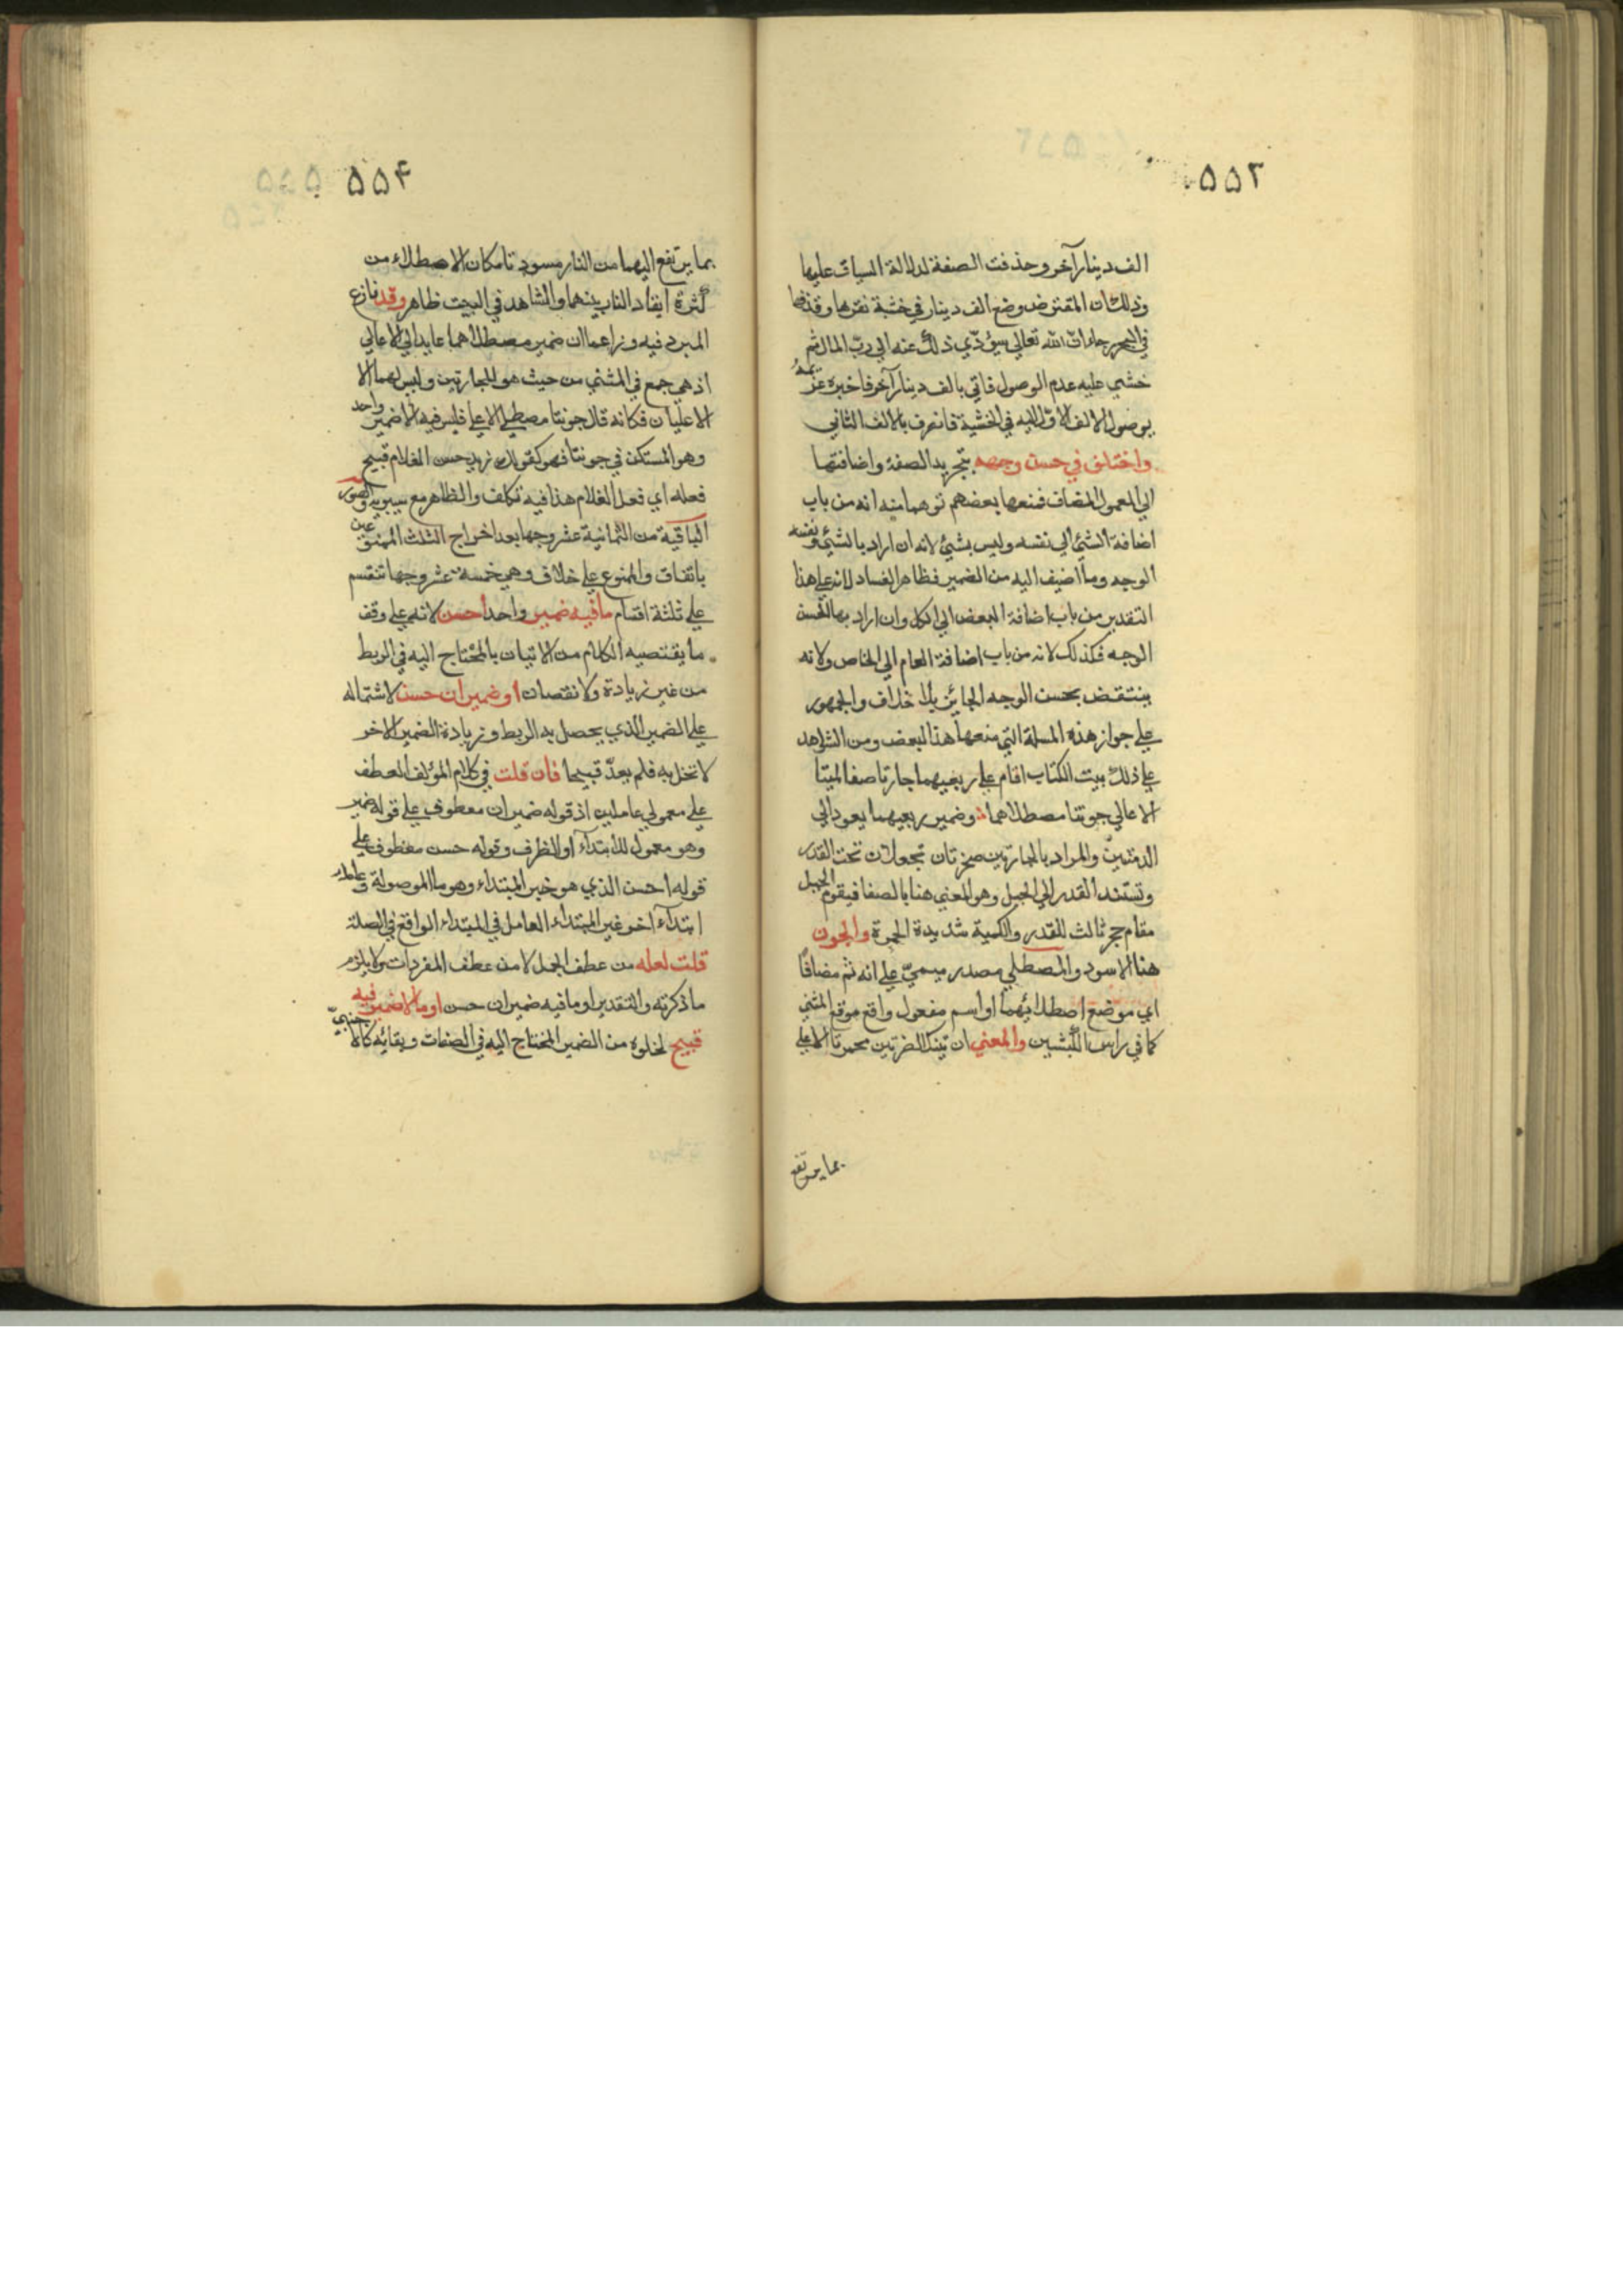 ۵۵۳
الف دينار آخر وحذفت الصفة لدلالة السياق عليها
وذلك ان المقترض وضع الف دينار في خشبة نقرها وقذفها
في البحر رجاء ان الله تعالى سيؤدّي ذلك عنه الي ربّ المال ثم
خشي عليه عدم الوصول فاتي بالف دينار آخر فاخبره غريمه
بوصول الالف الاوّل اليه في الخشبة فانصرف بالالف الثاني
واختلف في حسن وجهه بتجريد الصفة واضافتها
الي المعمول المضاف فمنعها بعضهم توهما منه انه من باب
اضافة الشيئ الي نفسه وليس بشيئ لانه ان اراد بالشيئ ونفسه
الوجه وما اضيف اليه من الضمير فظاهر الفساد لانه علي هذا
التقدير من باب اضافة البعض الي الكل وان اراد بها الحسن
الوجه فكذلك لانه من باب اضافة العام الي الخاص ولانه
ينتقض بحسن الوجه الجائز بلا خلاف والجمهور
علي جواز هذه المسلة التي منعها هذا البعض ومن الشواهد
علي ذلك بيت الكتاب اقام علي ربعيهما جارتا صفا كميتا
الاعالي جونتا مصطلاهما وضمير ربعيهما يعود الي
الدمنتين والمراد بالجارتين صخرتان تجعلان تحت القدر
وتستند القدر الي الجبل وهو المعني هنا بالصفا فيقوم الجبل
مقام حجر ثالث للقدر والكمية شديدة الحمرة والجون
هنا الاسود والمصطلي مصدر ميميّ علي انه ثم مضافًا
اي موضع اصطلائهما او اسم مفعول واقع موقع المثني
كما في راس الكبشين والمعني ان تينك الصخرتين محمرتا الاعلي
بما يرتفع
۵۵۴
بما يرتفع اليهما من النار مسودتا مكان الاصطلاء من
كثرة ايقاد النار بينهما والشاهد في البيت ظاهر وقد نازع
المبرد فيه وزاعما ان ضمير مصطلاهما عايد الي الاعالي
اذ هي جمع في المثني من حيث هو للجارتين وليس لهما الا
الاعليان فكانه قال جونتا مصطلي الاعلي فليس فيه الا ضمير واحد
وهو المستكن في جونتا فهو كقولك زيد حسن الغلام قبيح
فعله اي فعل الغلام هذا فيه تكلف والظاهر مع سيبويه والصور
الباقية من الثمانية عشر وجها بعد اخراج الثلث الممنوعين
باتفاق والممنوع علي خلاف وهي خمسة عشر وجها تنقسم
علي ثلثة اقسام ما فيه ضمير واحد احسن لانه علي وفق
ما يقتضيه الكلام من الاتيان بالمحتاج اليه في الربط
من غير زيادة ولا نقصان او ضميران حسن لاشتماله
علي الضمير الذي يحصل به الربط وزيادة الضمير الاخر
لا تخل به فلم يعدّ قبيحا فان قلت في كلام المؤلف العطف
علي معمولي عاملين اذ قوله ضميران معطوف علي قوله ضمير
وهو معمول للابتدآء او للظرف وقوله حسن معطوف علي
قوله احسن الذي هو خبر المبتداء وهو ما الموصولة وعامله
ابتدآء اخر غير المبتداء العامل في المبتداء الواقع في الصلة
قلت لعله من عطف الجمل لا من عطف المفردات ولا يلزم
ما ذكرته والتقدير او ما فيه ضميران حسن او ما لا ضمير فيه
قبيح لخلوه من الضمير المحتاج اليه في الصفات وبقائه كالاجنبيّ